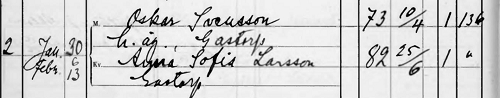 M. Oskar Svensson 73 10/4 1 136
2 Jan. 30 h. äg., Gastorp
Febr. 6 Kv. Anna Sofia Larsson 82 25/6 1 "
13 Gastorp